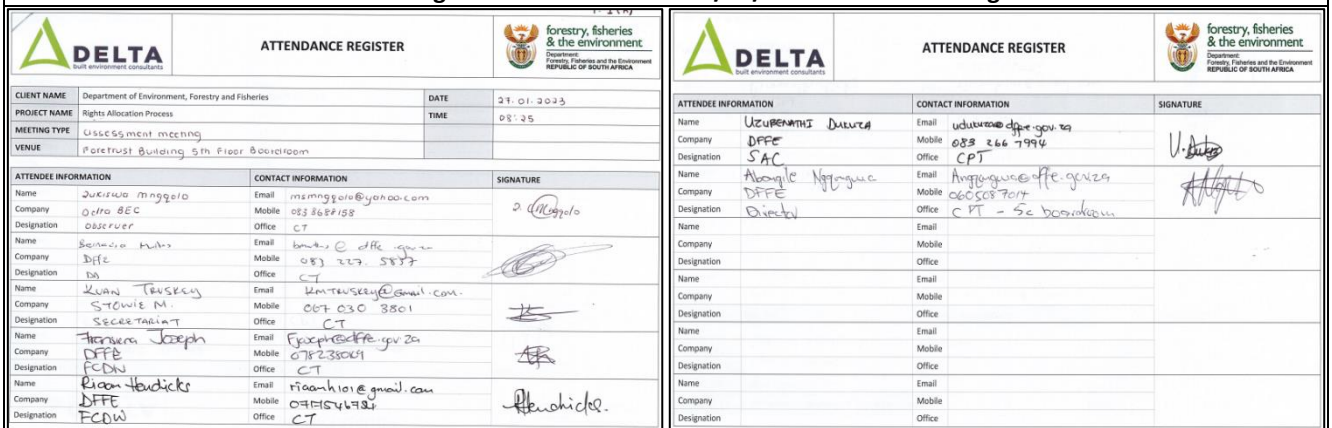 DELTA
built environment consultants
ATTENDANCE REGISTER
forestry, fisheries
& the environment
Department:
Forestry, Fisheries and the Environment
REPUBLIC OF SOUTH AFRICA
CLIENT NAME Department of Environment, Forestry and Fisheries DATE 27.01.2023
PROJECT NAME Rights Allocation Process TIME 08:25
MEETING TYPE Assessment meeting
VENUE Foretrust Building 5th Floor Boardroom
ATTENDEE INFORMATION CONTACT INFORMATION SIGNATURE
Name Email
Company Delta BEC Mobile
Designation Observer Office CT
Name Email
Company DFFE Mobile 083 227. 5857
Designation DA Office CT
Name KUAN TRUSKEY Email KMTRUSKEY@Gmail.com.
Company STOWIE M. Mobile 067 030 3801
Designation SECRETARIAT Office CT
Name Joseph Email
Company DFFE Mobile
Designation Office CT
Name Riaan Hendicks Email riaanh101@gmail.com
Company DFFE Mobile
Designation FCDW Office CT
DELTA
built environment consultants
ATTENDANCE REGISTER
forestry, fisheries
& the environment
Department:
Forestry, Fisheries and the Environment
REPUBLIC OF SOUTH AFRICA
ATTENDEE INFORMATION CONTACT INFORMATION SIGNATURE
Name UZUBENATHI Email
Company DFFE Mobile 083 266 7994
Designation SAC Office CPT
Name Email
Company DFFE Mobile
Designation Director Office CPT - 5c boardroom
Name Email
Company Mobile
Designation Office
Name Email
Company Mobile
Designation Office
Name Email
Company Mobile
Designation Office
Name Email
Company Mobile
Designation Office